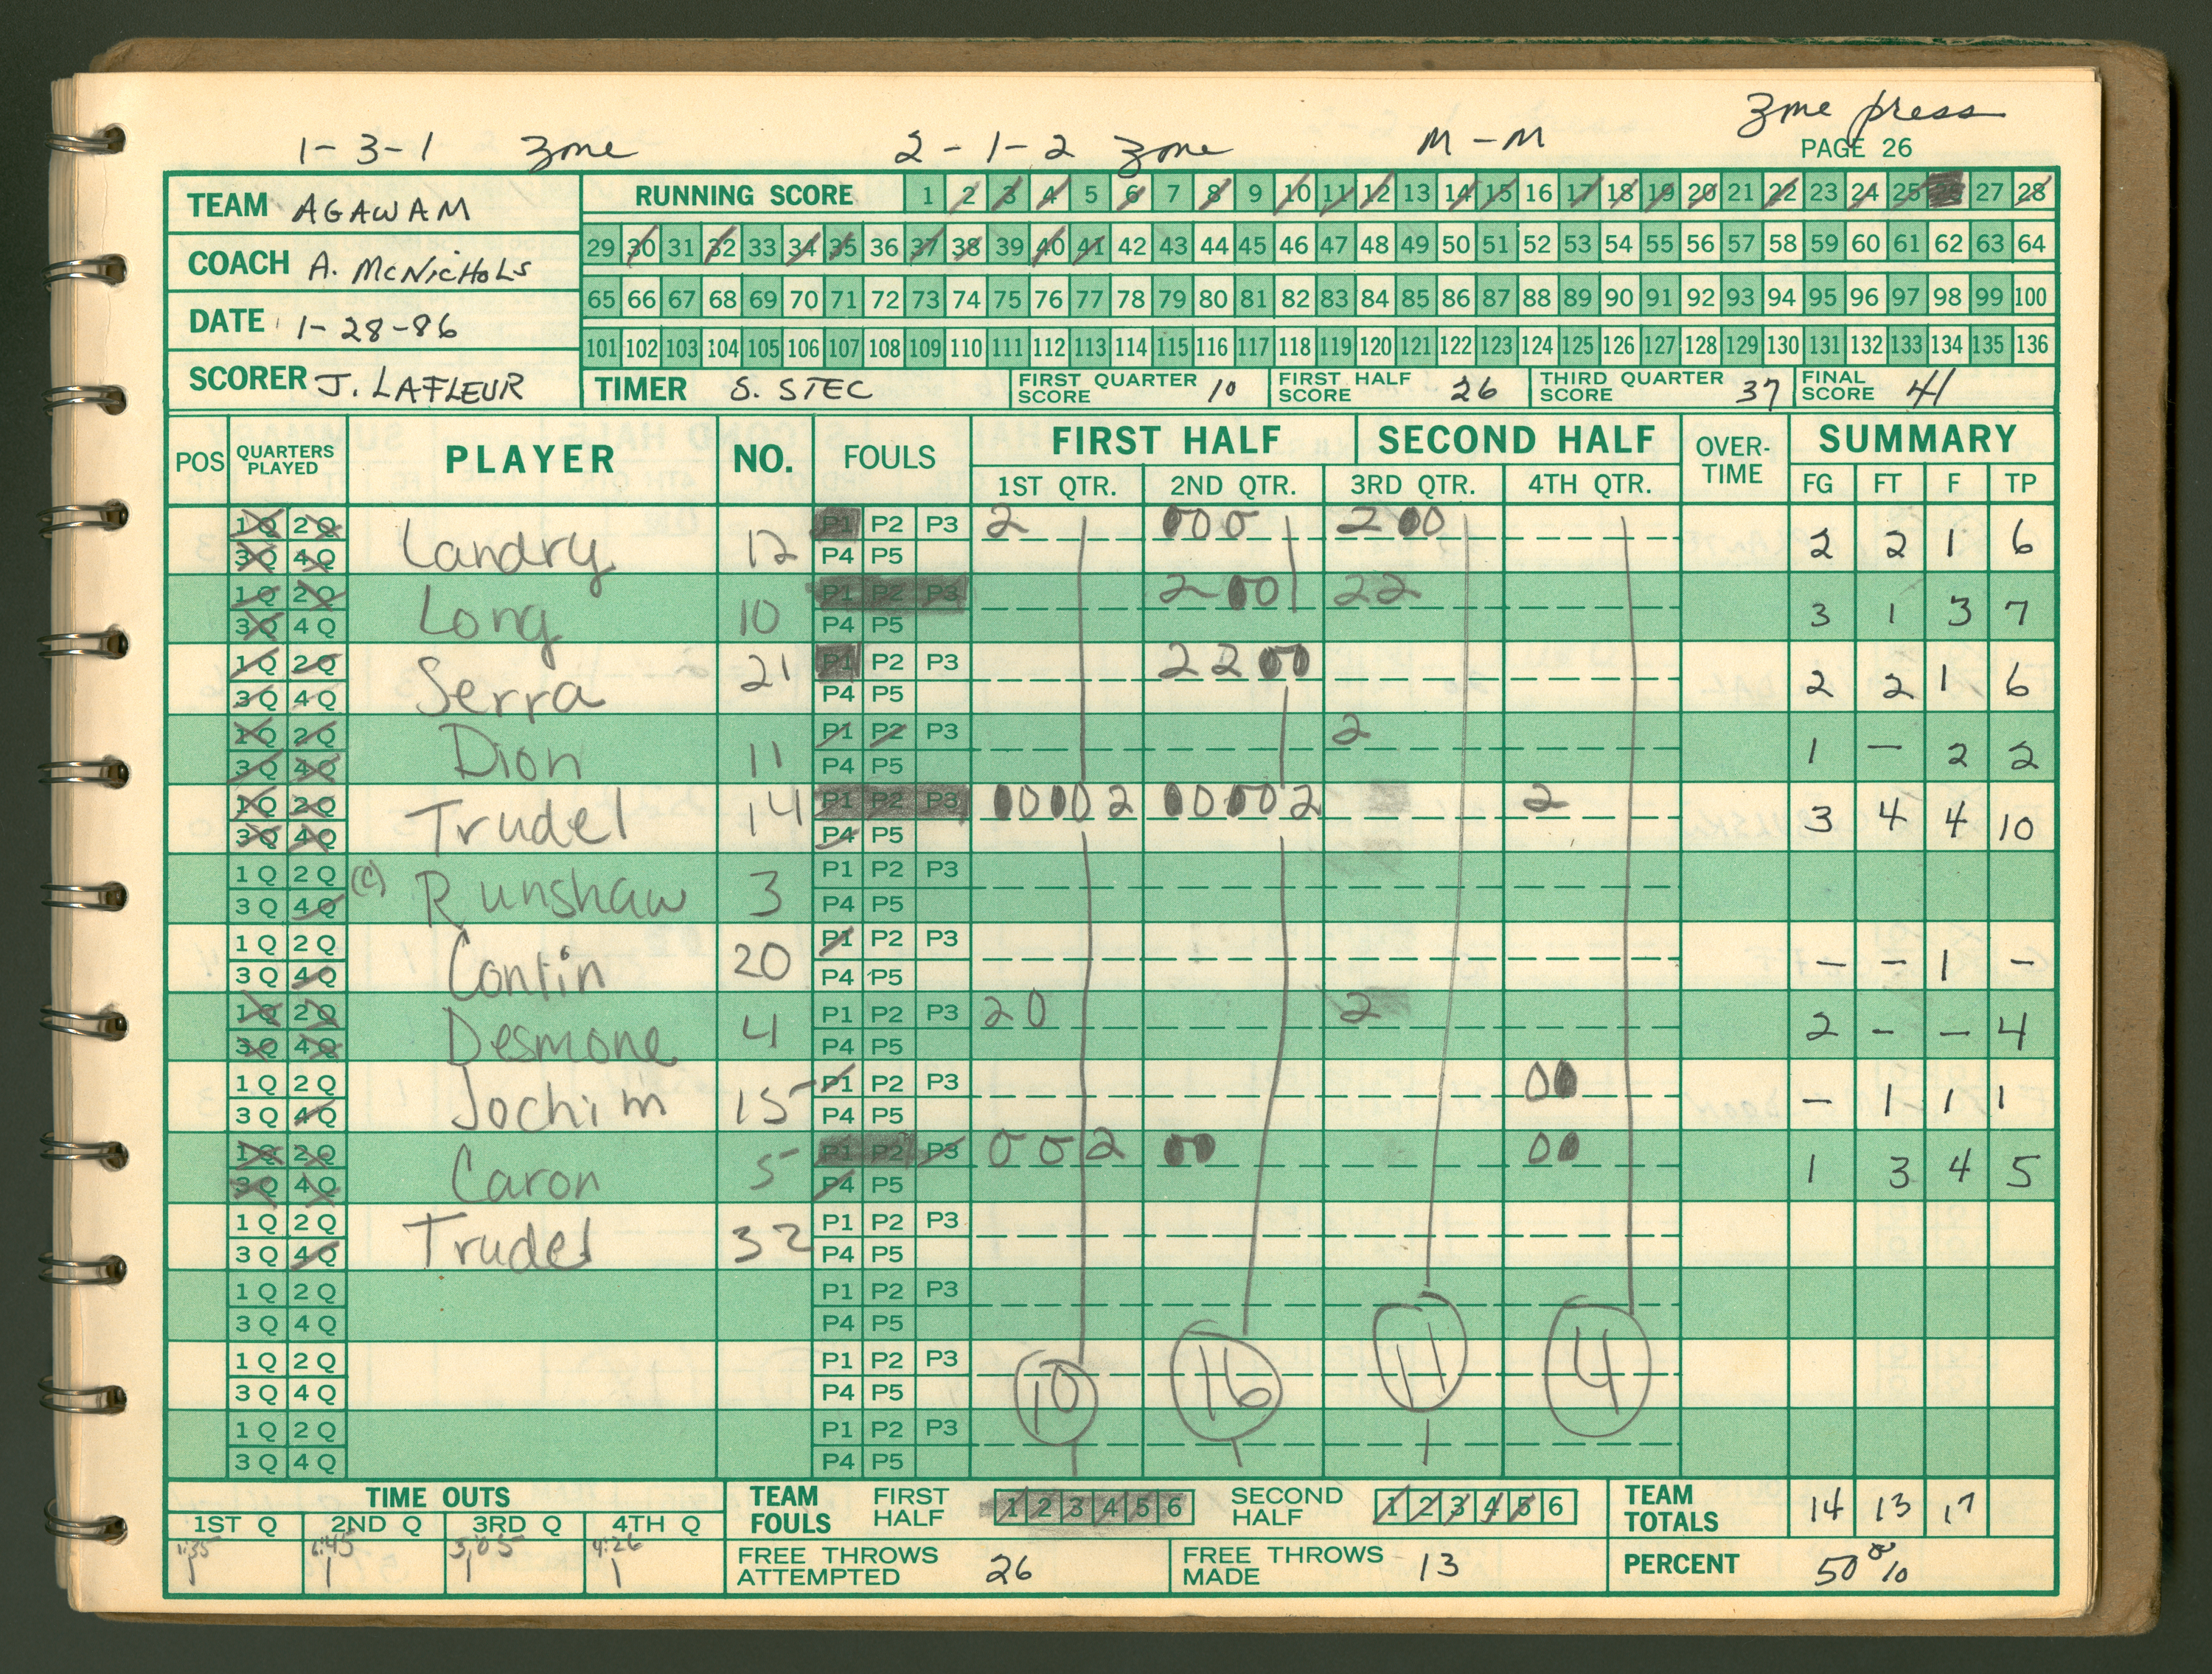 1-3-1 Zone 2-1-2 Zone M-M Zone press
PAGE 26
TEAM AGAWAM
COACH A. McNICHOLS
DATE 1-28-86
SCORER J. LAFLEUR
RUNNING SCORE 1 2 3 4 5 6 7 8 9 10 11 12 13 14 15 16 17 18 19 20 21 22 23 24 25 26 27 28
29 30 31 32 33 34 35 36 37 38 39 40 41 42 43 44 45 46 47 48 49 50 51 52 53 54 55 56 57 58 59 60 61 62 63 64
65 66 67 68 69 70 71 72 73 74 75 76 77 78 79 80 81 82 83 84 85 86 87 88 89 90 91 92 93 94 95 96 97 98 99 100
101 102 103 104 105 106 107 108 109 110 111 112 113 114 115 116 117 118 119 120 121 122 123 124 125 126 127 128 129 130 131 132 133 134 135 136
TIMER S. STEC FIRST QUARTER SCORE 10 FIRST HALF SCORE 26 THIRD QUARTER SCORE 37 FINAL SCORE 41
POS QUARTERS PLAYED PLAYER NO. FOULS FIRST HALF SECOND HALF OVER-TIME SUMMARY
1ST QTR. 2ND QTR. 3RD QTR. 4TH QTR. FG FT F TP
1Q 2Q P1 P2 P3 2 000 200
3Q 4Q Landry 12 P4 P5 2 2 1 6
1Q 2Q P1 P2 P3 200 22
3Q 4Q Long 10 P4 P5 3 1 3 7
1Q 2Q P1 P2 P3 2200
3Q 4Q Serra 21 P4 P5 2 2 1 6
1Q 2Q P1 P2 P3 2
3Q 4Q Dion 11 P4 P5 1 - 2 2
1Q 2Q P1 P2 P3 00002 00002 2
3Q 4Q Trudel 14 P4 P5 3 4 4 10
1Q 2Q P1 P2 P3
3Q 4Q (C) Runshaw 3 P4 P5
1Q 2Q P1 P2 P3
3Q 4Q Contin 20 P4 P5 - - 1 -
1Q 2Q P1 P2 P3 20 2
3Q 4Q Desmone 4 P4 P5 2 - - 4
1Q 2Q P1 P2 P3 00
3Q 4Q Jochim 15 P4 P5 - 1 1 1
1Q 2Q P1 P2 P3 002 00 00
3Q 4Q Caron 5 P4 P5 1 3 4 5
1Q 2Q P1 P2 P3
3Q 4Q Trudel 32 P4 P5
1Q 2Q P1 P2 P3
3Q 4Q P4 P5
1Q 2Q P1 P2 P3
3Q 4Q P4 P5 10 16 11 4
1Q 2Q P1 P2 P3
3Q 4Q P4 P5
TIME OUTS
1ST Q 2ND Q 3RD Q 4TH Q
1:35 6:45 3:05 4:26
1 1 1 1
TEAM FOULS FIRST HALF 1 2 3 4 5 6 SECOND HALF 1 2 3 4 5 6 TEAM TOTALS 14 13 17
FREE THROWS ATTEMPTED 26 FREE THROWS MADE 13 PERCENT 50%